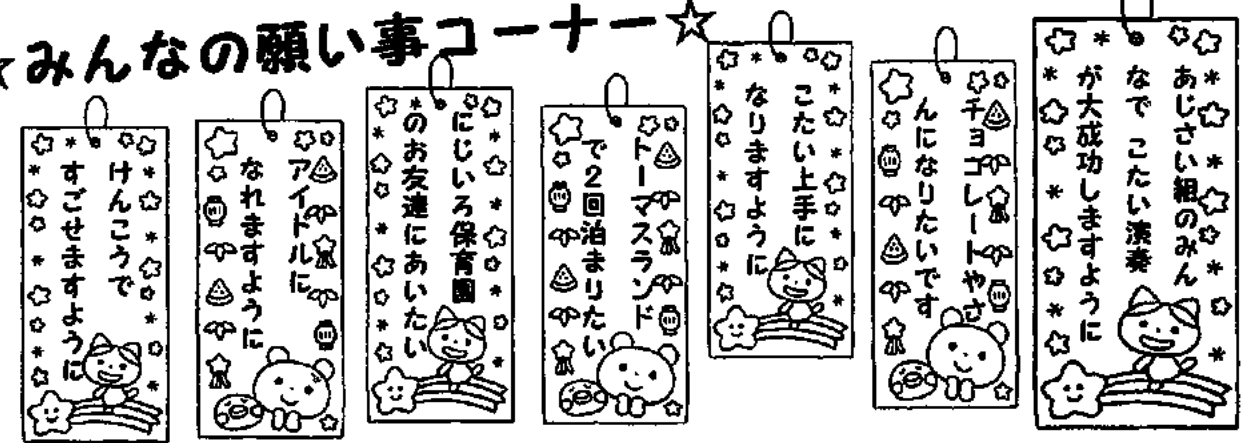 ☆みんなの願い事コーナー☆
けんこうで
すごせますように
アイドルに
なれますように
にじいろ保育園
のお友達にあいたい
トーマスランド
で2回泊まりたい
こたい上手に
なりますように
チョコレートやさ
んになりたいです
あじさい組のみん
なで こたい演奏
が大成功しますように